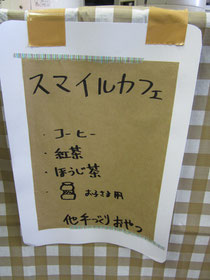 スマイルカフェ
・コーヒー
・紅茶
・ほうじ茶
・ お子さま用
他手づくりおやつ